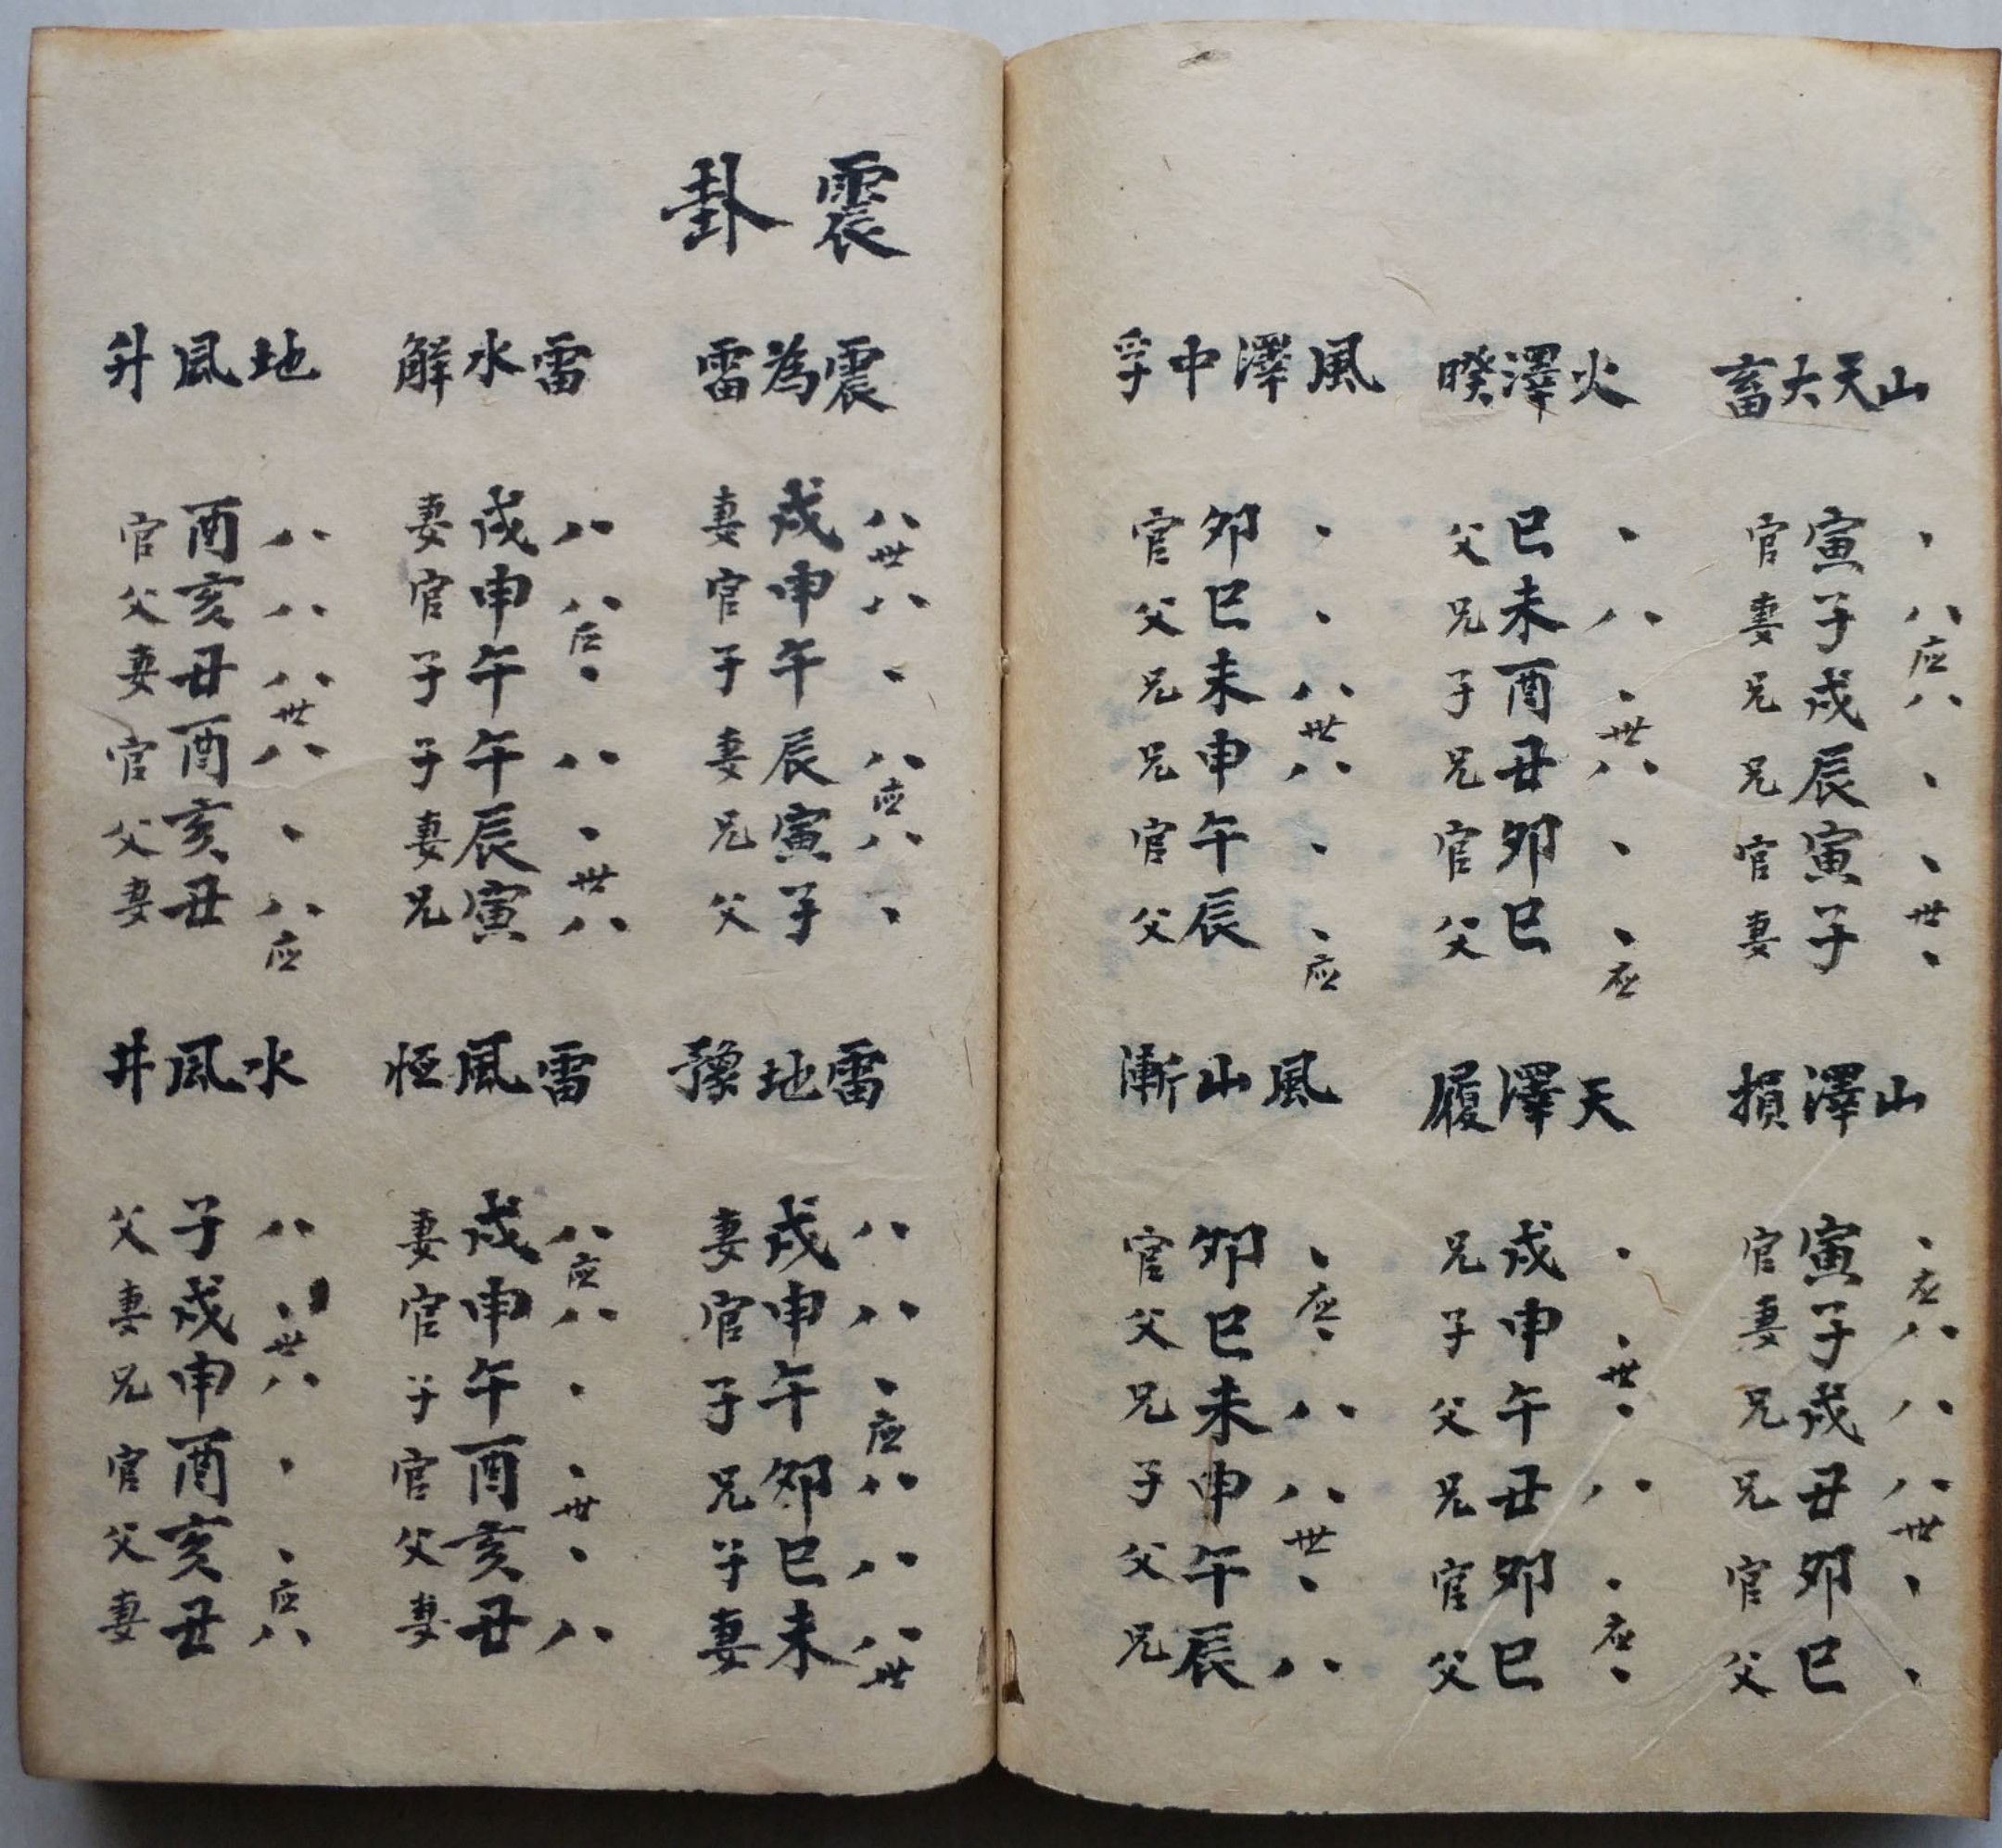 山天大畜
、八应八、、世、
寅子戌辰寅子
官妻兄兄官妻
山澤損
、应八八八世、、
寅子戌丑卯巳
官妻兄兄官父
火澤暌
、八、世八、、应
巳未酉丑卯巳
父兄子兄官父
天澤履
、、世、八、应、
戌申午丑卯巳
兄子父兄官父
風澤中孚
、、八世八、、应
卯巳未申午辰
官父兄兄官父
風山漸
、应、八八世、八
卯巳未申午辰
官父兄子父兄
震卦
震為雷
八世八、八应八、
戌申午辰寅子
妻官子妻兄父
雷地豫
八八、应八八八世
戌申午卯巳未
妻官子兄子妻
雷水解
八八应、八、世八
戌申午午辰寅
妻官子子妻兄
雷風恒
八应八、、世、八
戌申午酉亥丑
妻官子官父妻
地風升
八八八世八、八应
酉亥丑酉亥丑
官父妻官父妻
水風井
八、世八、、应八
子戌申酉亥丑
父妻兄官父妻